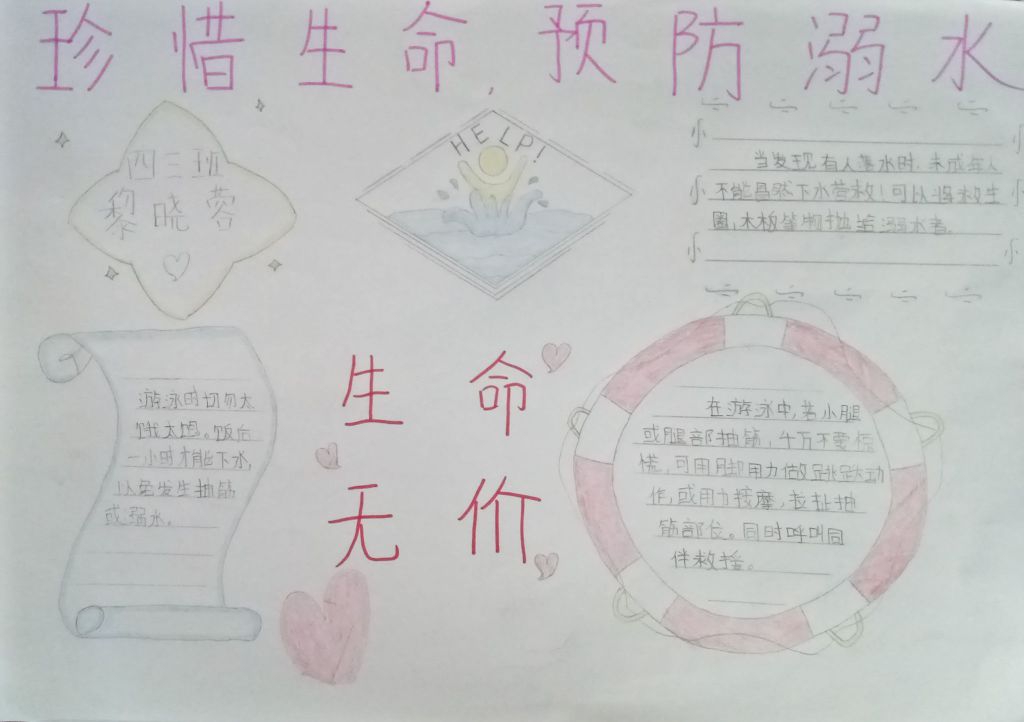 珍惜生命,预防溺水
四三班
黎晓蓉
HELP!
当发现有人落水时,未成年人
不能冒然下水营救!可以将救生
圈,木板等物抛给溺水者.
游泳时切勿太
饿太饱。饭后
一小时才能下水,
以免发生抽筋
或溺水。
生命
无价
在游泳中,若小腿
或腿部抽筋,千万不要惊
慌,可用脚用力做跳跃动
作,或用力按摩,拉扯抽
筋部位。同时呼叫同
伴救援。